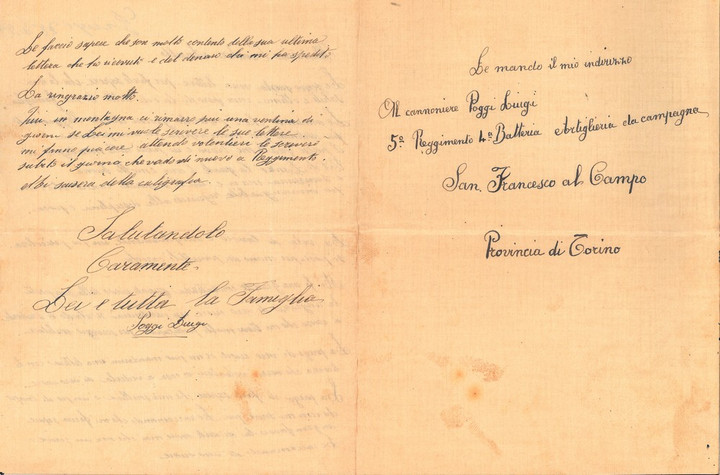 Le faccio sapere che son molto contento della sua ultima
lettera che ho ricevuti e del denaro chi mi ha spedito
La ringrazio molto.
Qui, in montagna ci rimarro piu una ventina di
giorni se Lei mi vuole scrivere le sue lettere
mi fanno piacere attendi volentieri le scriverò
subito il giorno che vado di nuovo a Reggimento.
Mi scuserà della caligrafia
Salutandolo
Caramente.
Lei e tutta la Famiglia
Poggi Luigi
Le mando il mio indirizzo
Al cannoniere Poggi Luigi
5º Reggimento 4ª Batteria Artiglieria da campagna
San Francesco al Campo
Provincia di Torino